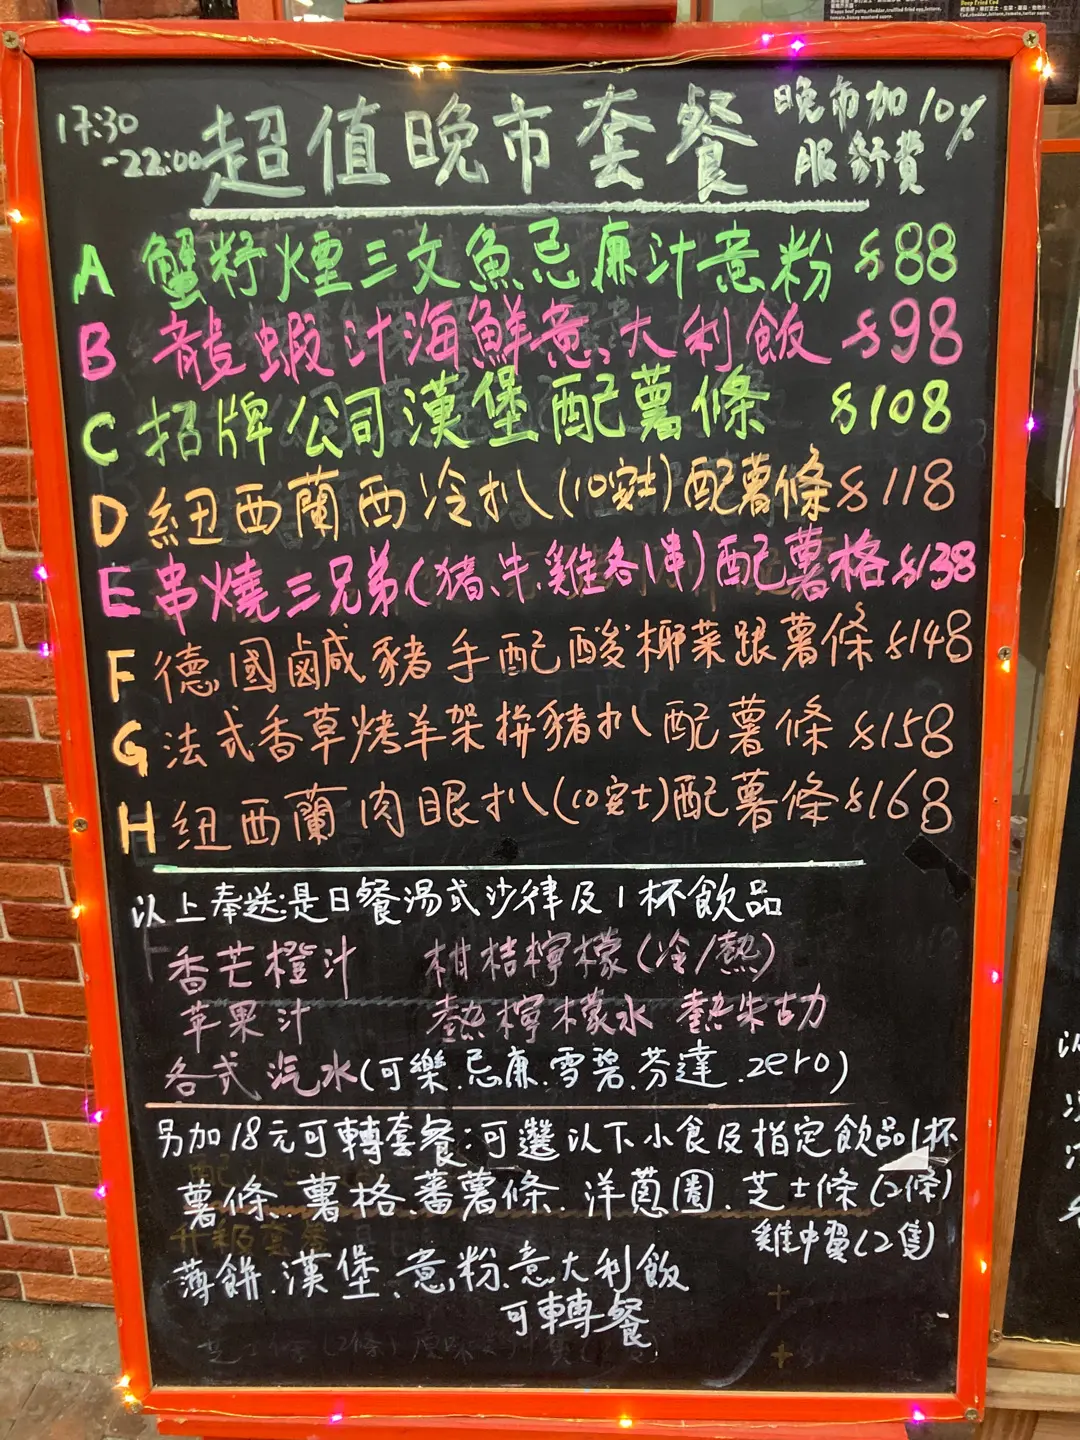 17:30
-22:00
超值晚市套餐
晚市加10%
服務費
A 蟹籽煙三文魚忌廉汁意粉 $88
B 龍蝦汁海鮮意大利飯 $98
C 招牌公司漢堡配薯條 $108
D 紐西蘭西冷扒(10安士)配薯條 $118
E 串燒三兄弟(豬、牛、雞各1串)配薯格 $138
F 德國鹹豬手配酸椰菜跟薯條 $148
G 法式香草烤羊架拚豬扒配薯條 $158
H 紐西蘭肉眼扒(10安士)配薯條 $168
以上奉送:是日餐湯或沙律及1杯飲品
香芒橙汁 柑桔檸檬(冷/熱)
苹果汁 熱檸檬水 熱朱古力
各式汽水(可樂.忌廉.雪碧.芬達.zero)
另加18元可轉套餐:可選以下小食及指定飲品1杯
薯條.薯格.蕃薯條.洋葱圈.芝士條(2條)
雞中翼(2隻)
薄餅.漢堡.意粉.意大利飯
可轉餐